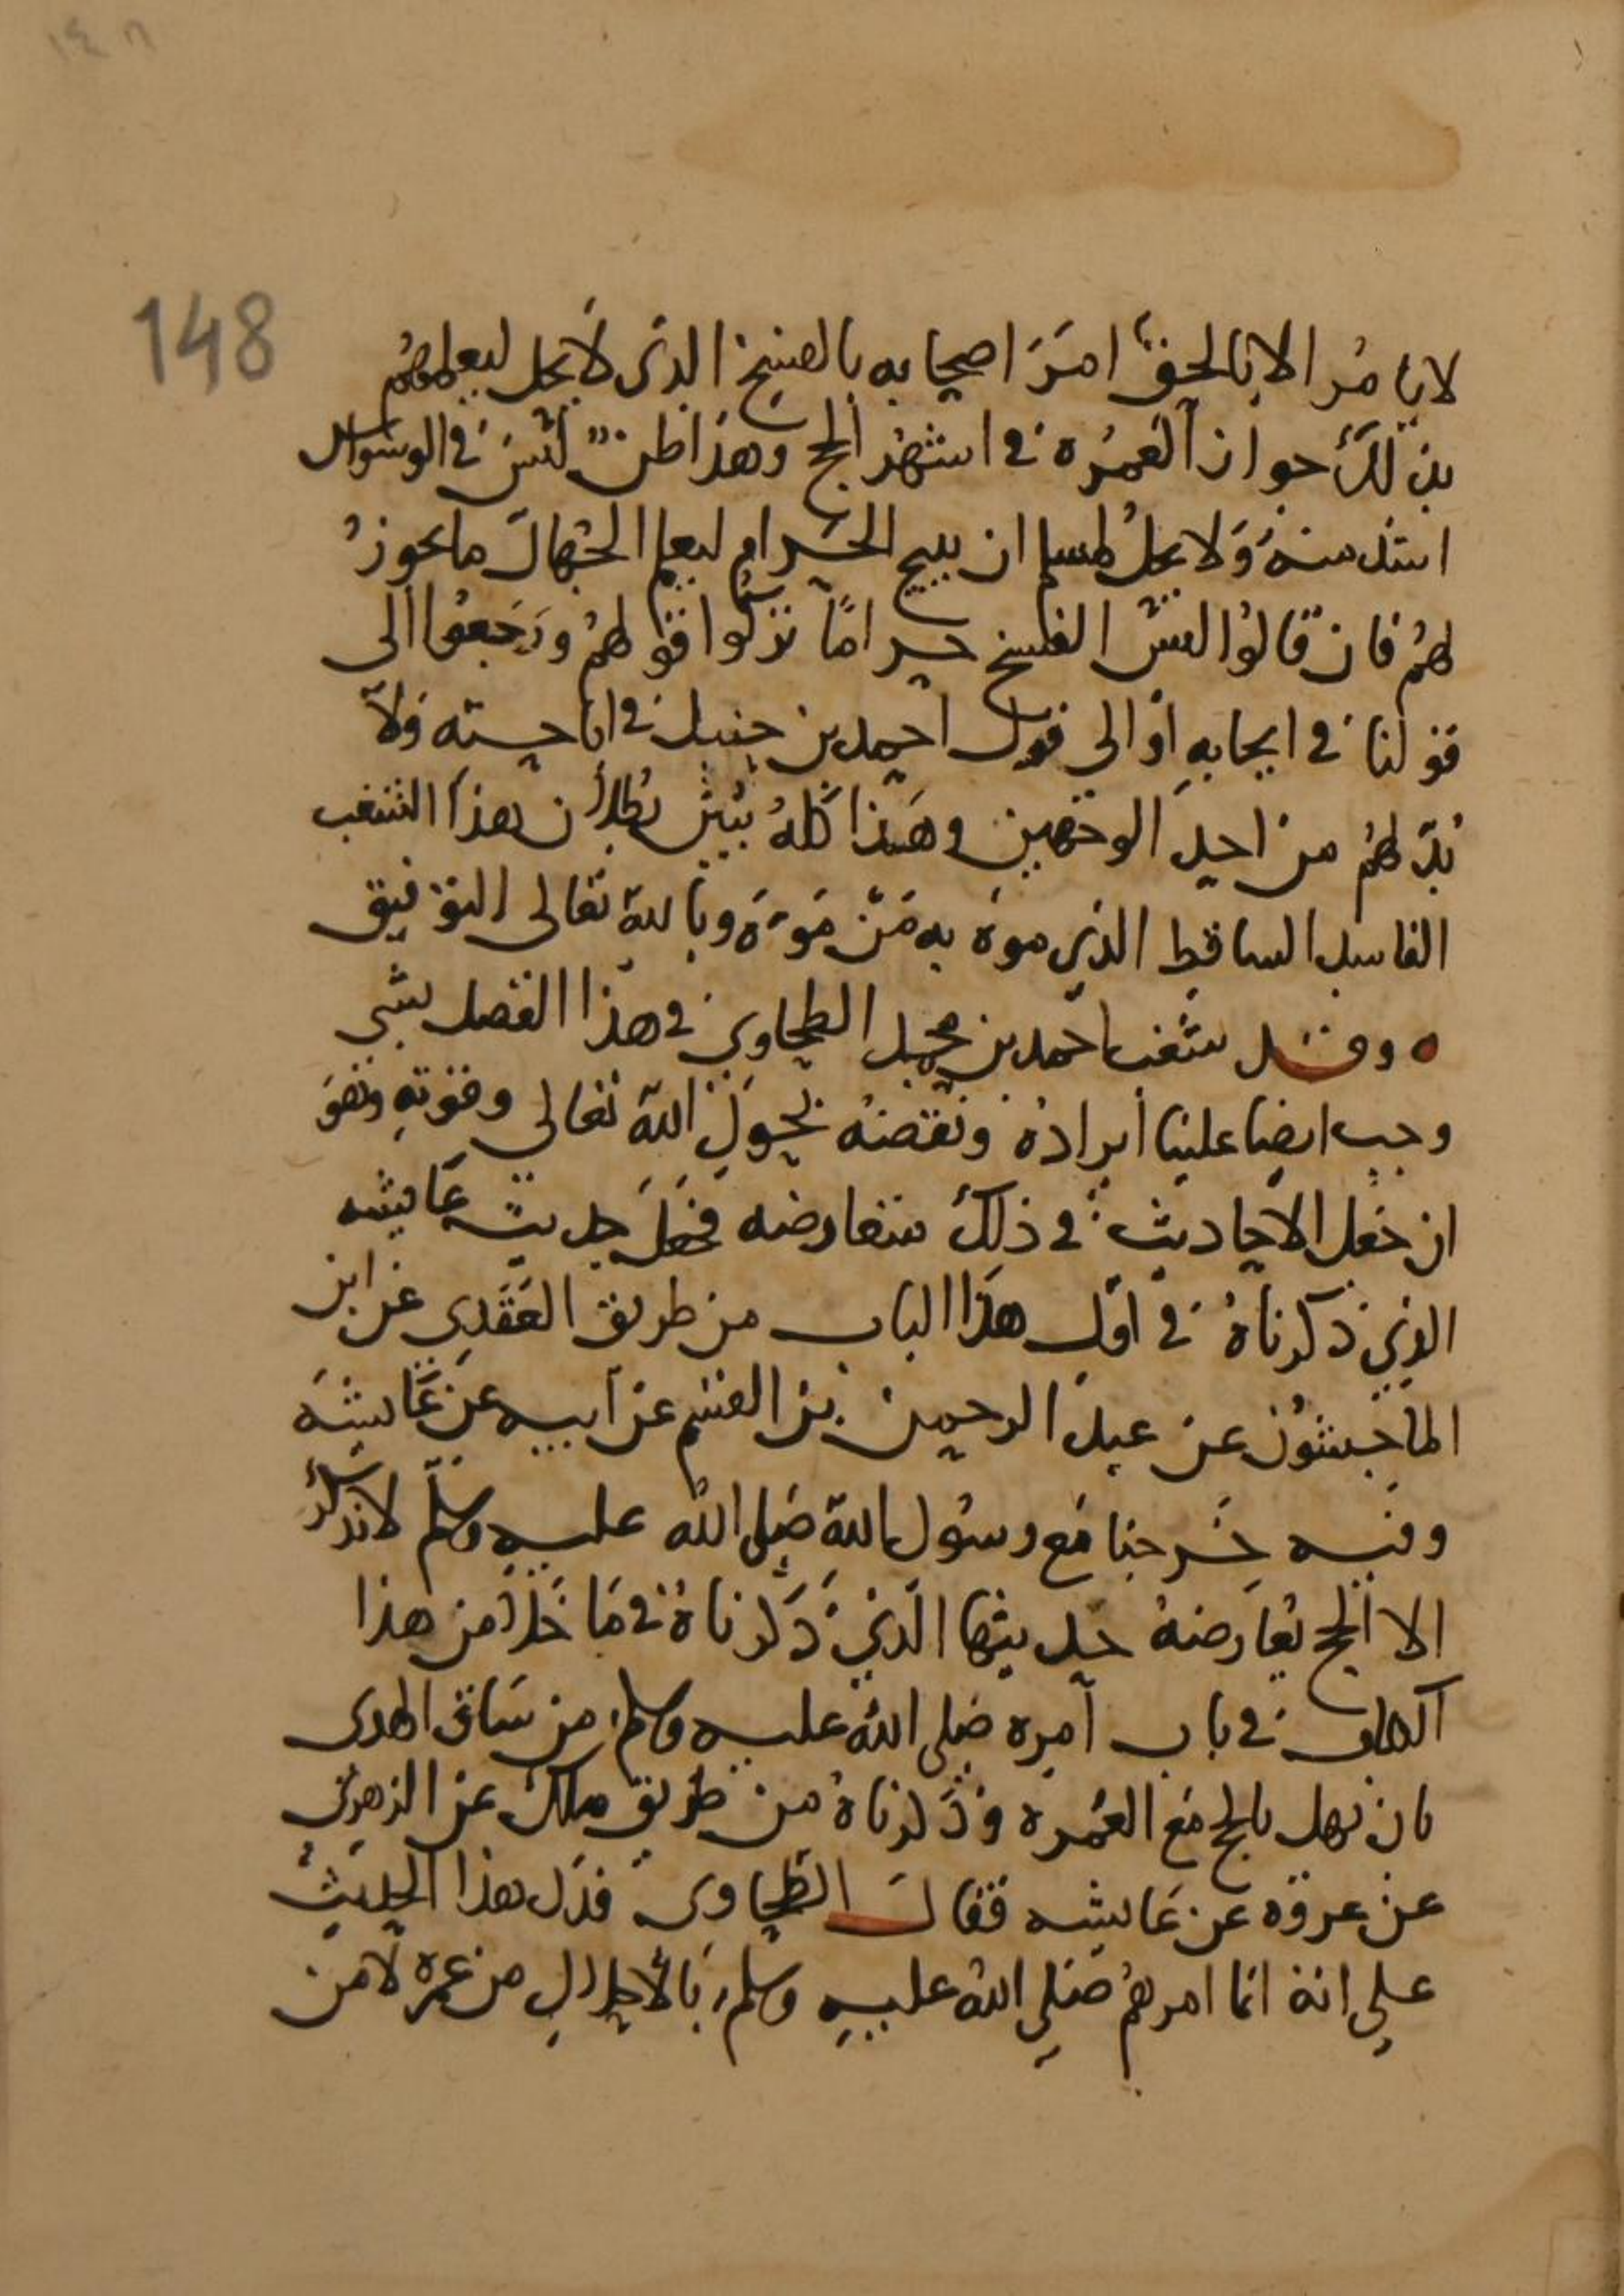 ١٤٨
148
لا يامُر الا بالحق امَرَ اصحابه بالفسخ الذى لا يحل ليعلمهُم
بذلك جواز العُمْرة في اشهُر الحج وهذا ظنٌّ ليسَ في الوسواس
اشد منهُ وَلا يحلُ لمسلم ان يبيح الحَرام ليعلم الجُهالَ ما يجوزُ
لهُم فان قالوُا ليسَ الفسخ حراماً تركوا قولهُم ورَجعُوا الى
قولنا في ايجابهِ أو الى قول احمد بن حنبل في اباحته وَلا
بُدّ لهُم من احد الوجهين وهَذا كلهُ يُبيّن بُطلان هذا الشغب
الفاسد الساقط الذي موه به مَن مَوّهَ وبالله تَعالى التوفيق
ه وقد شغب احمد بن محمد الطحاوي في هذا الفصل بشي
وجب ايضا علينا أيرادهُ ونقضهُ بحَولِ الله تعَالى وقوّتهِ وهوَ
ان جَعل الاحاديث في ذلكَ متعارضه فجعَلَ حديث عَايشه
الذي ذكرناهُ في اول هَذا الباب من طريق العَقَدِى عَن ابن
الماجِشُون عن عبد الرحمن بن القسم عن ابيه عن عَايشهَ
وفيه خَرجنا مَع رسوُل الله صَلى الله عليهِ وَسلّم لا نذكُر
الا الحج يُعَارضهُ حديثها الّذي ذَكرناهُ في مَا خَلا من هذا
الكتاب في باب أمره صَلى اللهُ عليه وسلم من سَاق الهدى
بان يهل بالحج مَع العُمره وذَكرناهُ من طَريق مالك عن الزهرى
عن عروَه عن عَايشه فقالَ الطَحاوى فدَل هذا الحديثُ
على انهُ انما امرهُم صَلى اللهُ عليهِ وسلم بالأحلالِ من عمره لا من